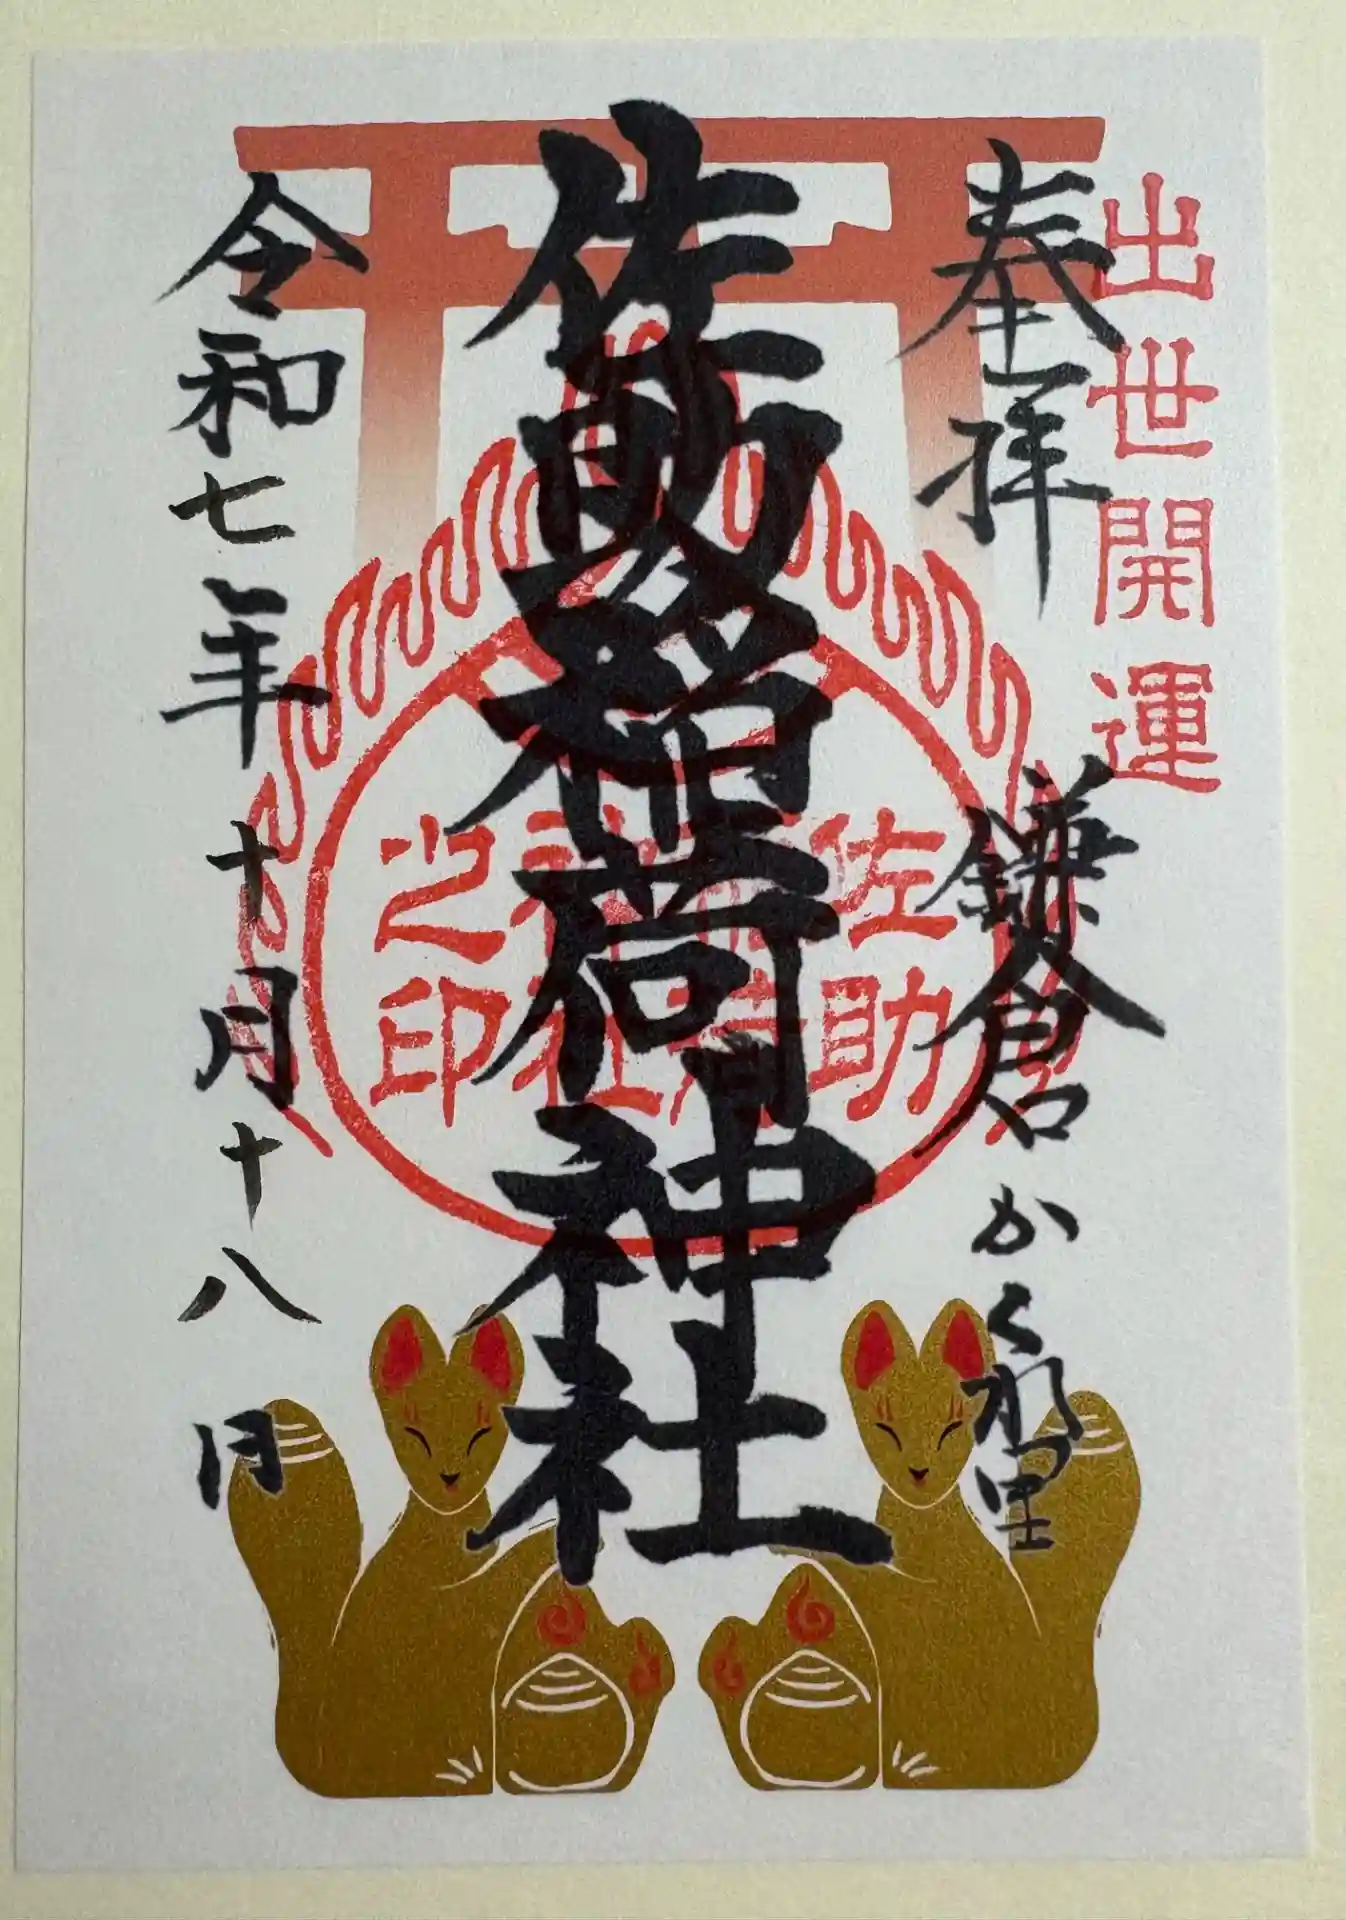 出世開運
奉拝
鎌倉かくれ里
佐助稲荷神社
佐助
稲荷
神社
之印
令和七年十月十八日